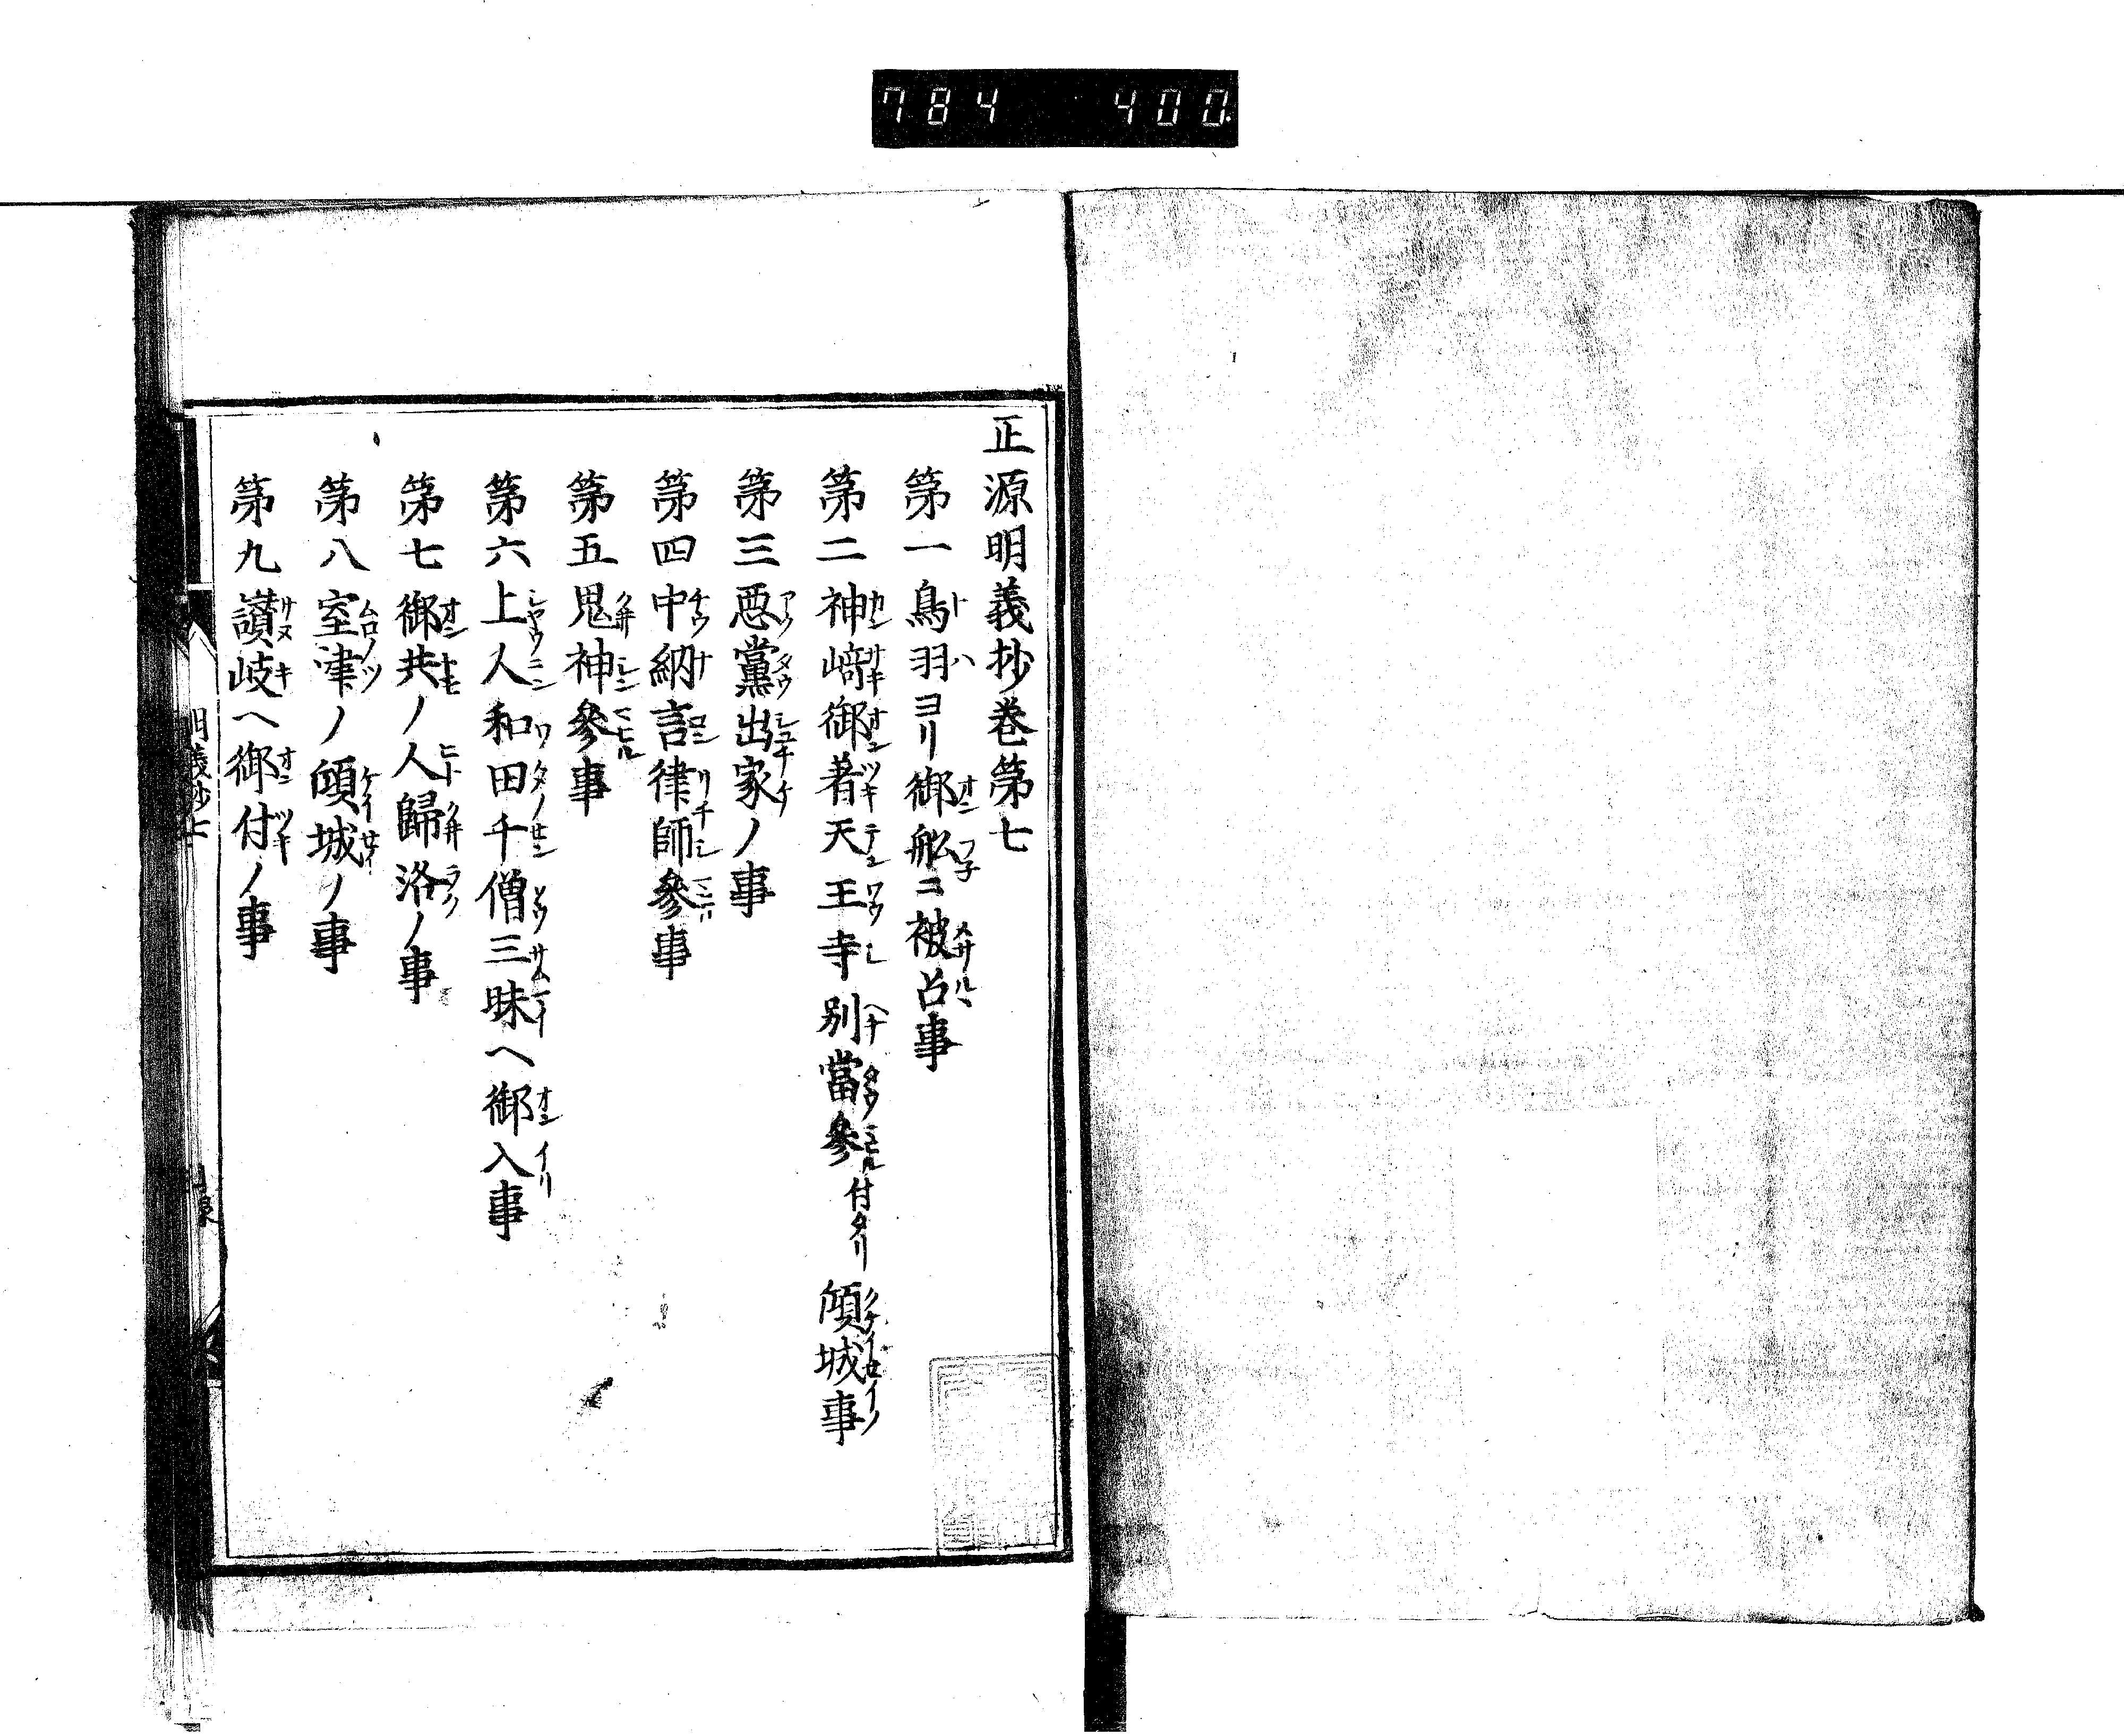 784 400
正源明義抄巻第七
第一鳥羽ヨリ御船ニ被召事
第二神﨑御著天王寺別當參付タリ傾城事
第三惡黨出家ノ事
第四中納言律師參事
第五鬼神參事
第六上人和田千僧三昧ヘ御入事
第七御共ノ人歸洛ノ事
第八室津ノ傾城ノ事
第九讚岐ヘ御付ノ事
明義抄七
目錄